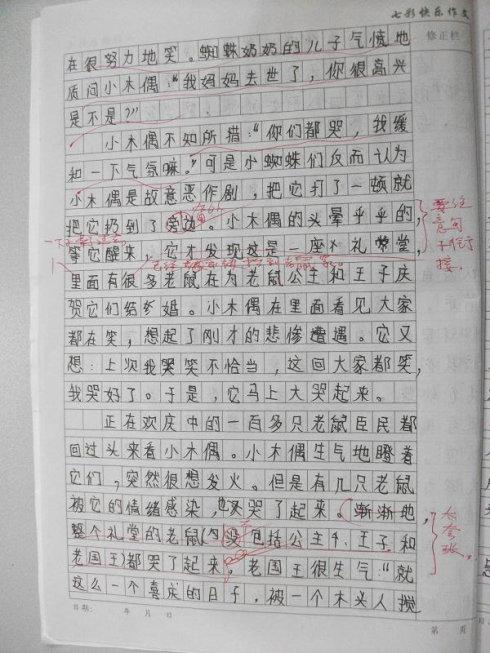 七彩快乐作文
修正栏
在很努力地笑。蜘蛛奶奶的儿子气愤地
质问小木偶:“我妈妈去世了,你很高兴
是不是?”
小木偶不知所措:“你们都哭,我缓
和一下气氛嘛。”可是小蜘蛛们反而认为
小木偶是故意恶作剧,把它打了一顿就
把它扔到了旁边。小木偶的头晕乎乎的,
等它醒来,它才发现这是一座礼堂,
里面有很多老鼠在为老鼠公主和王子庆
贺它们结婚。小木偶在里面看见大家
都在笑,想起了刚才的悲惨遭遇。它又
想:上次我哭笑不恰当,这回大家都笑,
我哭好了。于是,它马上大哭起来。
正在欢庆中的一百多只老鼠臣民都
回过头来看小木偶。小木偶生气地瞪着
它们,突然很想发火。但是有几只老鼠
被它的情绪感染,也哭了起来。渐渐地,
整个礼堂的老鼠(包括公主、王子和
老国王)都哭了起来。老国王很生气:“就
这么一个喜庆的日子,被一个木头人搅
日期: 年 月 日
第 页